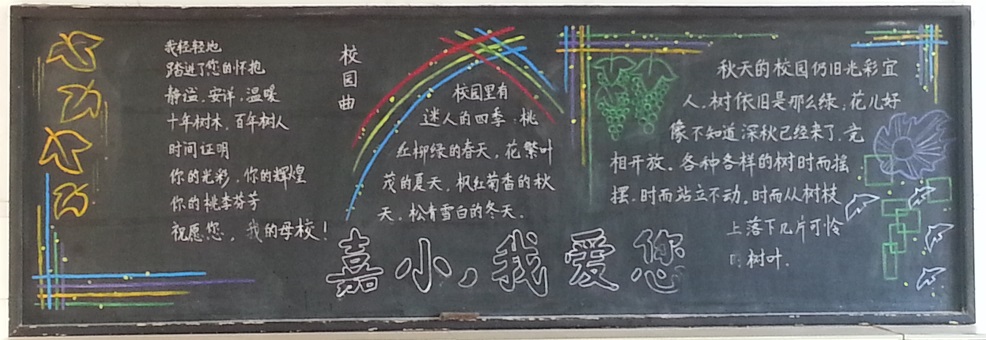 我轻轻地
踏进了您的怀抱
静谧、安详、温暖
十年树木,百年树人
时间证明
你的光彩,你的辉煌
你的桃李芬芳
祝愿您,我的母校!
校园曲
校园里有
迷人的四季:桃
红柳绿的春天,花繁叶
茂的夏天,枫红菊香的秋
天,松青雪白的冬天。
秋天的校园仍旧光彩宜
人。树依旧是那么绿,花儿好
像不知道深秋已经来了,竞
相开放。各种各样的树时而摇
摆,时而站立不动,时而从树枝
上落下几片可怜
的树叶.
嘉小,我爱您